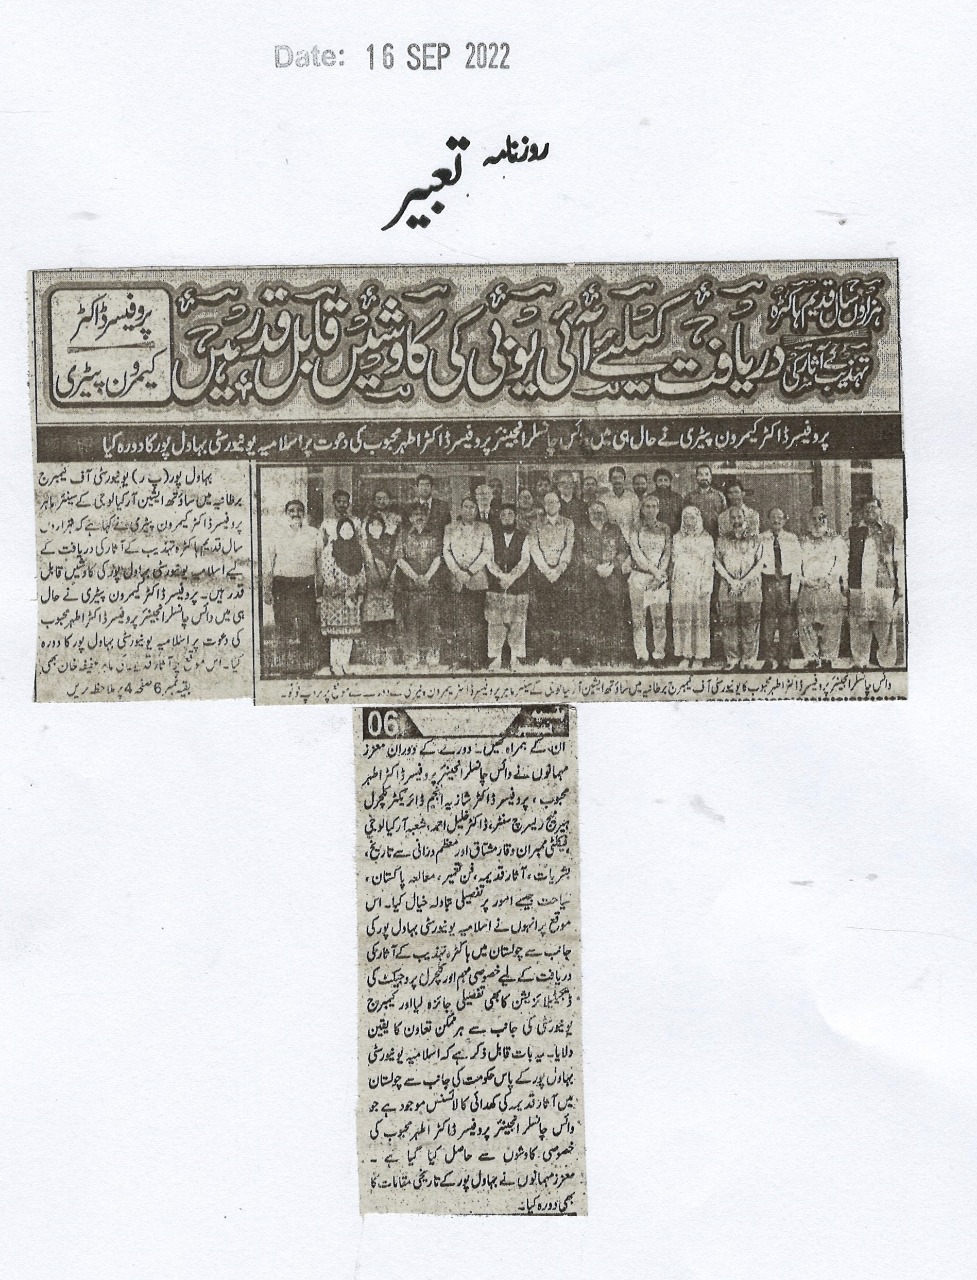 Date: 16 SEP 2022
روزنامہ تعبیر
ہزاروں سال قدیم ہاکڑہ
تہذیب کے آثار کی
دریافت کیلئے آئی یو بی کی کاوشیں قابل قدر ہیں
پروفیسر ڈاکٹر
کیمرون پیٹری
پروفیسر ڈاکٹر کیمرون پیٹری نے حال ہی میں وائس چانسلر انجینئر پروفیسر ڈاکٹر اطہر محبوب کی دعوت پر اسلامیہ یونیورسٹی بہاول پور کا دورہ کیا
بہاول پور(پ ر) یونیورسٹی آف کیمبرج
برطانیہ میں ساؤتھ ایشین آرکیالوجی کے سینئر ماہر
پروفیسر ڈاکٹر کیمرون پیٹری نے کہا ہے کہ ہزاروں
سال قدیم ہاکڑہ تہذیب کے آثار کی دریافت کے
لیے اسلامیہ یونیورسٹی بہاول پور کی کاوشیں قابل
قدر ہیں۔ پروفیسر ڈاکٹر کیمرون پیٹری نے حال
ہی میں وائس چانسلر انجینئر پروفیسر ڈاکٹر اطہر محبوب
کی دعوت پر اسلامیہ یونیورسٹی بہاول پور کا دورہ
کیا۔ اس موقع پر آثار قدیمہ خان بھی
بقیہ نمبر 6 صفحہ 4 پر ملاحظہ کریں
وائس چانسلر انجینئر پروفیسر ڈاکٹر اطہر محبوب کا یونیورسٹی آف کیمبرج برطانیہ میں ساؤتھ ایشین آرکیالوجی کے سینئر ماہر پروفیسر ڈاکٹر کیمرون پیٹری کے دورے کے موقع پر گروپ فوٹو۔
بقیہ 06
ان کے ہمراہ تھیں۔ دورے کے دوران معزز
مہمانوں نے وائس چانسلر انجینئر پروفیسر ڈاکٹر اطہر
محبوب، پروفیسر ڈاکٹر شازیہ انجم ڈائریکٹر کلچرل
ہیریٹیج ریسرچ سنٹر، ڈاکٹر خلیل احمد، شعبہ آرکیالوجی
فیکلٹی ممبران وقار مشتاق اور معظم درانی سے تاریخ،
بشریات، آثار قدیمہ، فن تعمیر، مطالعہ پاکستان،
سیاحت جیسے امور پر تفصیلی تبادلہ خیال کیا۔ اس
موقع پر انہوں نے اسلامیہ یونیورسٹی بہاول پور کی
جانب سے چولستان میں ہاکڑہ تہذیب کے آثار کی
دریافت کے لیے خصوصی مہم اور کلچرل پروجیکٹ کی
ڈیجیٹلائزیشن کا بھی تفصیلی جائزہ لیا اور کیمبرج
یونیورسٹی کی جانب سے ہر ممکن تعاون کا یقین
دلایا۔ یہ بات قابل ذکر ہے کہ اسلامیہ یونیورسٹی
بہاول پور کے پاس حکومت کی جانب سے چولستان
میں آثار قدیمہ کی کھدائی کا لائسنس موجود ہے جو
وائس چانسلر انجینئر پروفیسر ڈاکٹر اطہر محبوب کی
خصوصی کاوشوں سے حاصل کیا گیا ہے۔
معزز مہمانوں نے بہاول پور کے تاریخی مقامات کا
بھی دورہ کیا۔